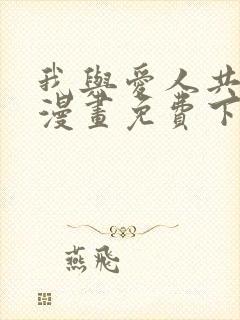 我與愛人共
漫畫免費下
燕飛